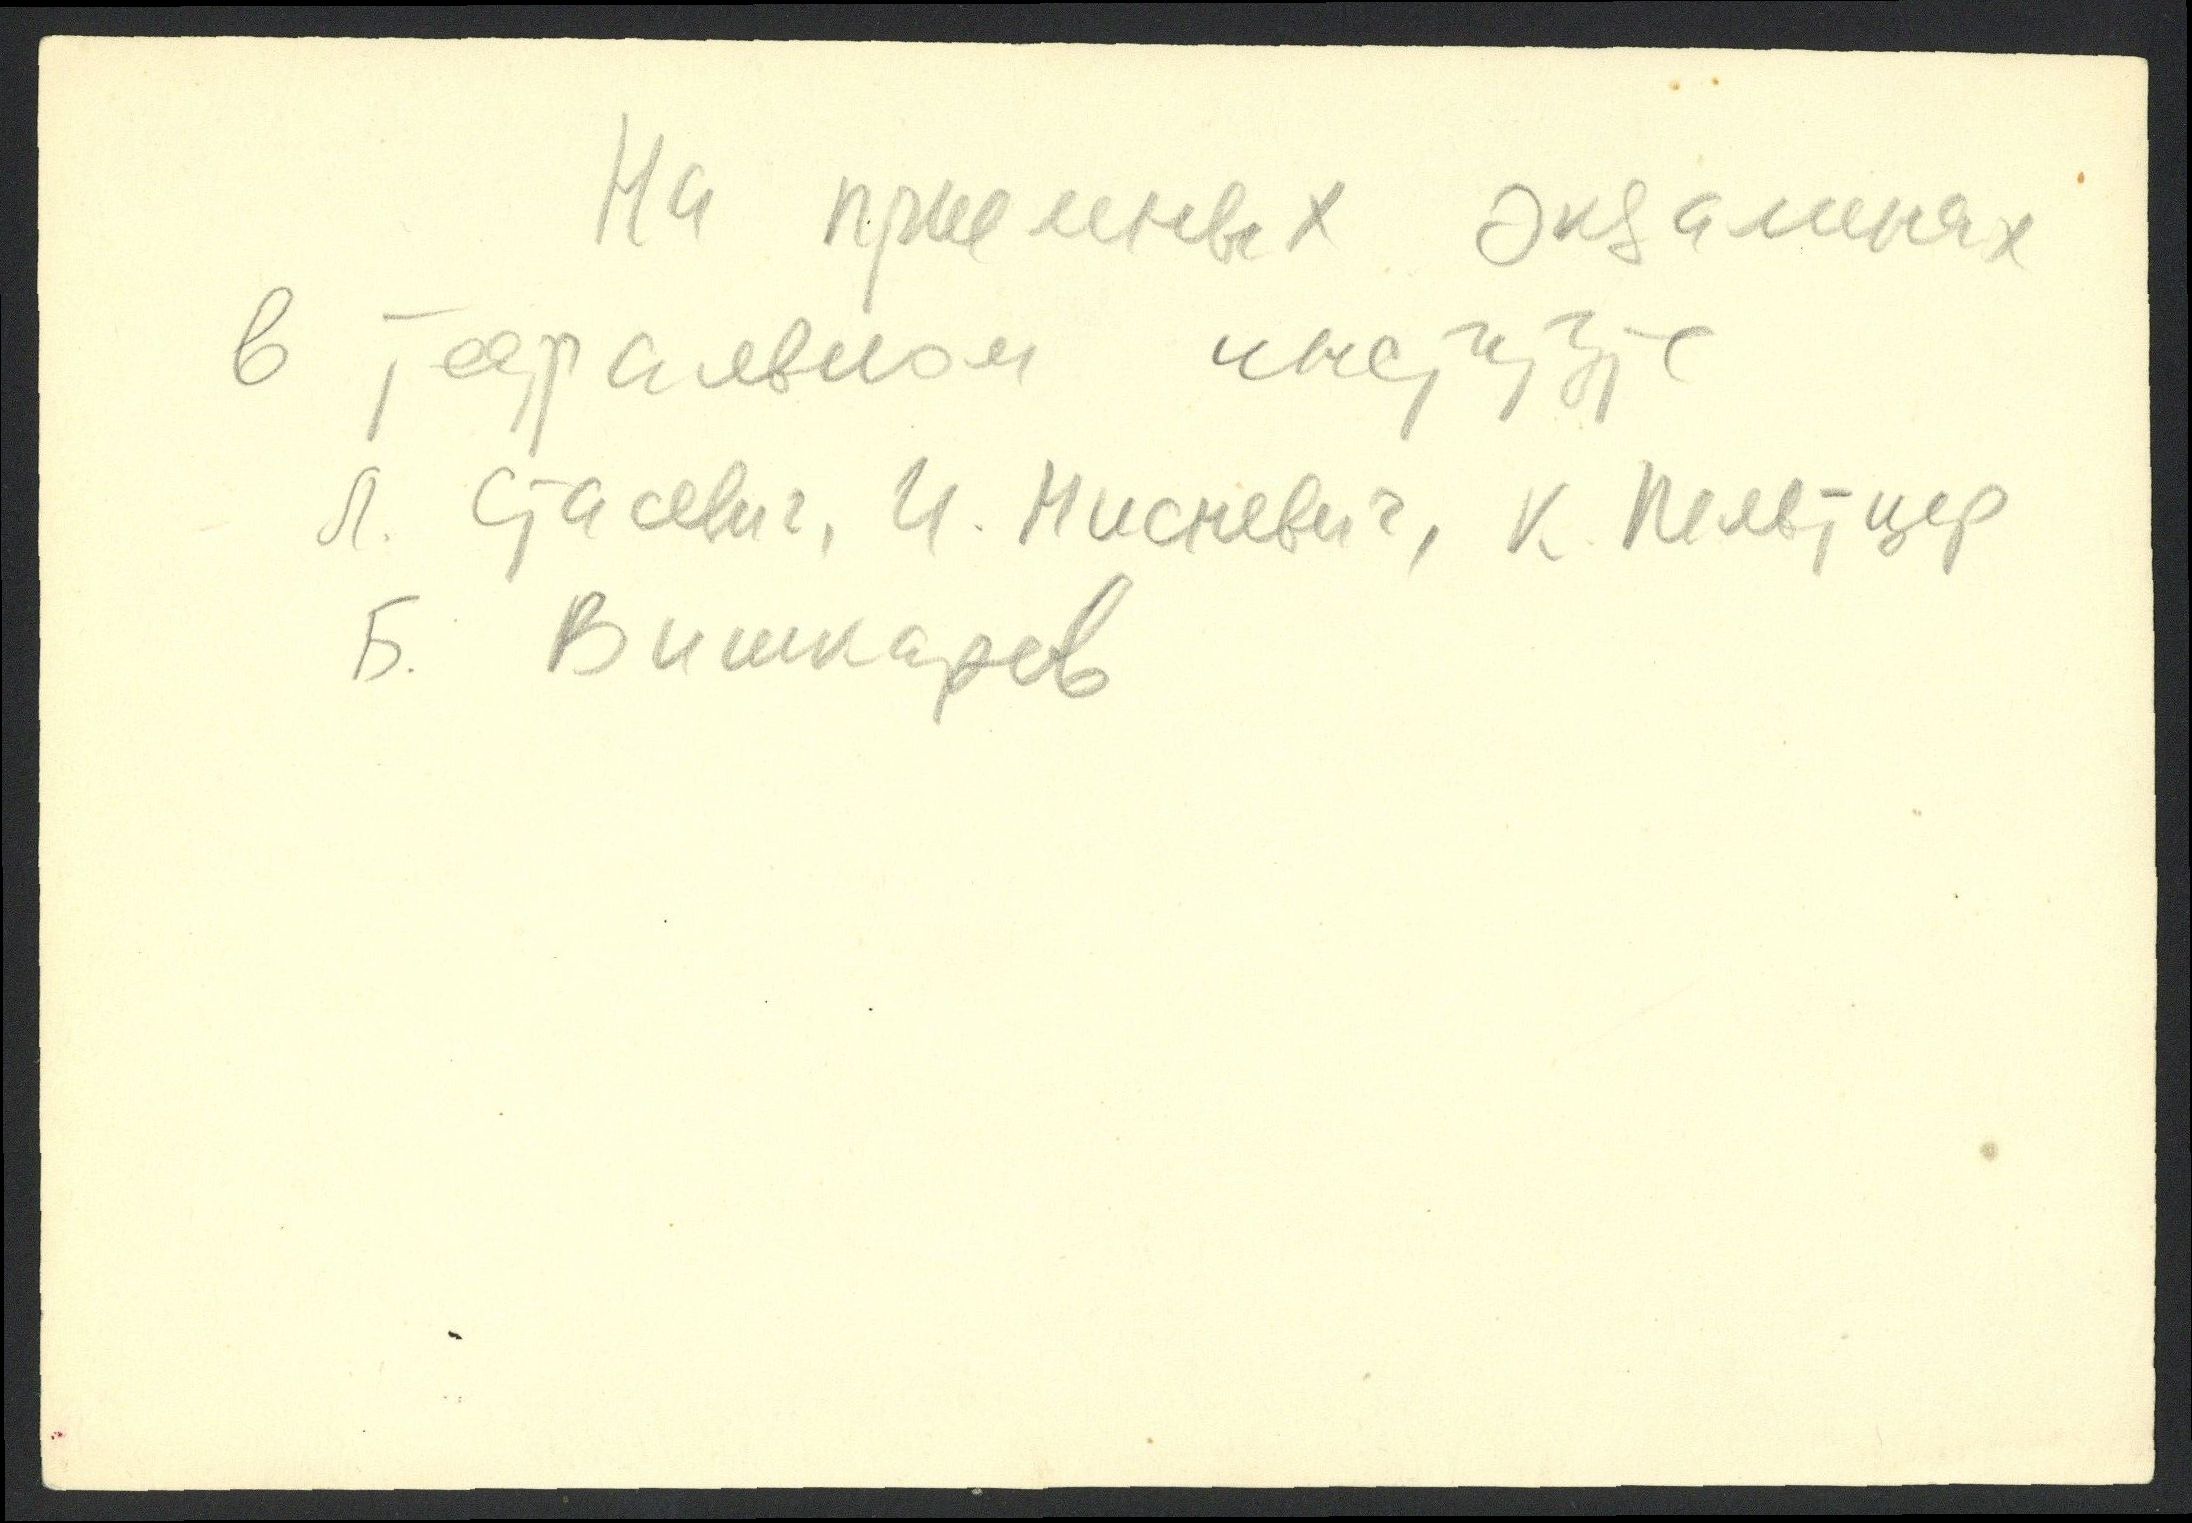 На приемных экзаменах
в театральном институте
Л. Стасевич, И. Мисневич, К. Пельтцер
Б. Вишкарев